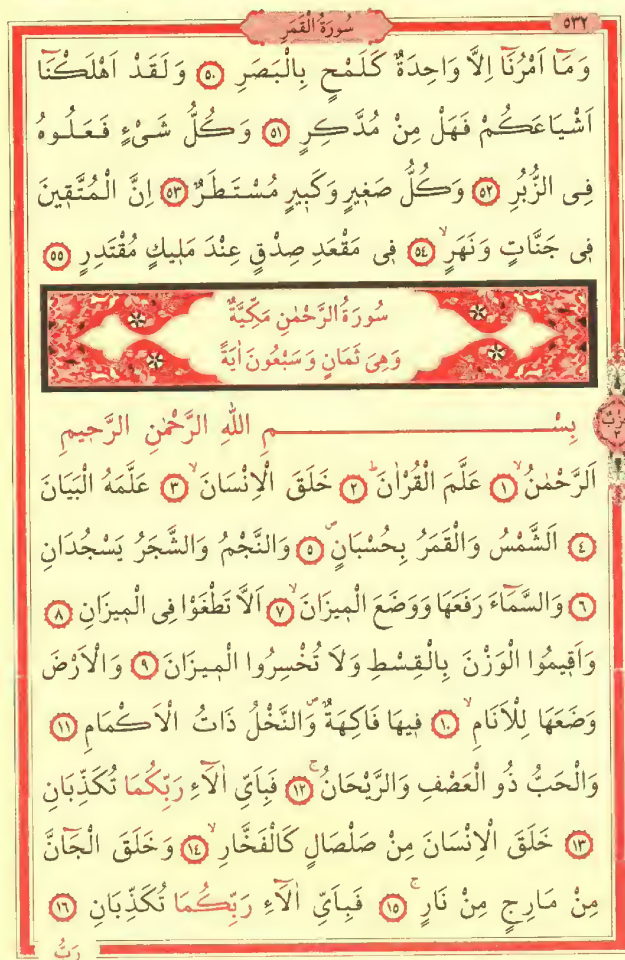 سُورَةُ الْقَمَرِ
٥٣٢
وَمَٓا اَمْرُنَٓا اِلَّا وَاحِدَةٌ كَلَمْحٍ بِالْبَصَرِ ٥٠ وَلَقَدْ اَهْلَكْنَٓا
اَشْيَاعَكُمْ فَهَلْ مِنْ مُدَّكِرٍ ٥١ وَكُلُّ شَىْءٍ فَعَلُوهُ
فِى الزُّبُرِ ٥٢ وَكُلُّ صَغٖيرٍ وَكَبٖيرٍ مُسْتَطَرٌ ٥٣ اِنَّ الْمُتَّقٖينَ
فٖى جَنَّاتٍ وَنَهَرٍۙ ٥٤ فٖى مَقْعَدِ صِدْقٍ عِنْدَ مَلٖيكٍ مُقْتَدِرٍ ٥٥
سُورَةُ الرَّحْمٰنِ مَكِّيَّةٌ
وَهِىَ ثَمَانٍ وَسَبْعُونَ اٰيَةً
بِسْمِ اللّٰهِ الرَّحْمٰنِ الرَّحٖيمِ
اَلرَّحْمٰنُۙ ١ عَلَّمَ الْقُرْاٰنَۜ ٢ خَلَقَ الْاِنْسَانَۙ ٣ عَلَّمَهُ الْبَيَانَ
٤ اَلشَّمْسُ وَالْقَمَرُ بِحُسْبَانٍۖ ٥ وَالنَّجْمُ وَالشَّجَرُ يَسْجُدَانِ
٦ وَالسَّمَٓاءَ رَفَعَهَا وَوَضَعَ الْمٖيزَانَۙ ٧ اَلَّا تَطْغَوْا فِى الْمٖيزَانِ ٨
وَاَقٖيمُوا الْوَزْنَ بِالْقِسْطِ وَلَا تُخْسِرُوا الْمٖيزَانَ ٩ وَالْاَرْضَ
وَضَعَهَا لِلْاَنَامِۙ ١٠ فٖيهَا فَاكِهَةٌ وَالنَّخْلُ ذَاتُ الْاَكْمَامِ ١١
وَالْحَبُّ ذُو الْعَصْفِ وَالرَّيْحَانُۚ ١٢ فَبِاَىِّ اٰلَٓاءِ رَبِّكُمَا تُكَذِّبَانِ
١٣ خَلَقَ الْاِنْسَانَ مِنْ صَلْصَالٍ كَالْفَخَّارِۙ ١٤ وَخَلَقَ الْجَٓانَّ
مِنْ مَارِجٍ مِنْ نَارٍۚ ١٥ فَبِاَىِّ اٰلَٓاءِ رَبِّكُمَا تُكَذِّبَانِ ١٦
رَبُّ
حِزْبٌ
٢